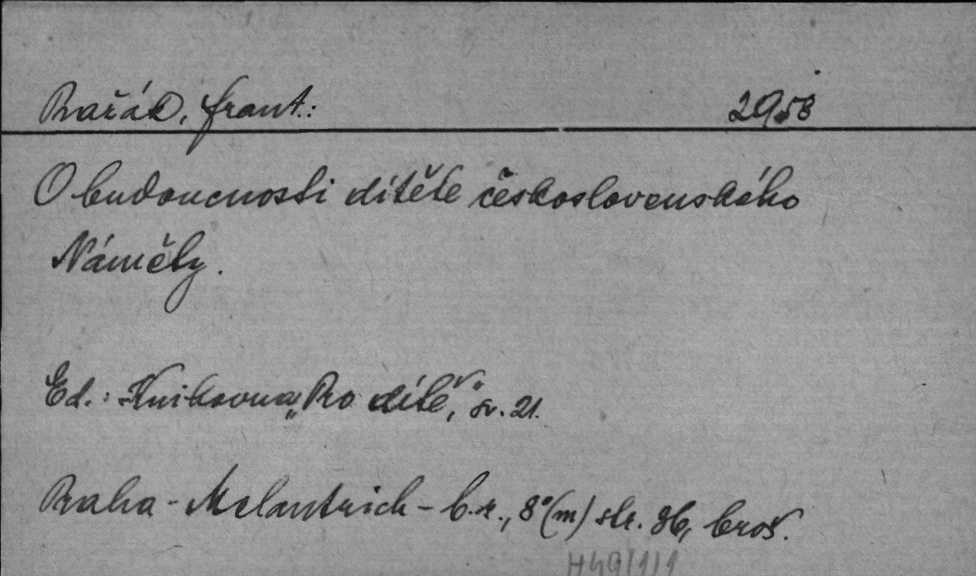 Pražák, Frant.: 2958
O budoucnosti dítěte československého
Náměty.
Ed.: Knihovna „Pro dítě“, sv. 21.
Praha - Melantrich - b.r., 8° (m) str. 86, brož.
H49/1/1